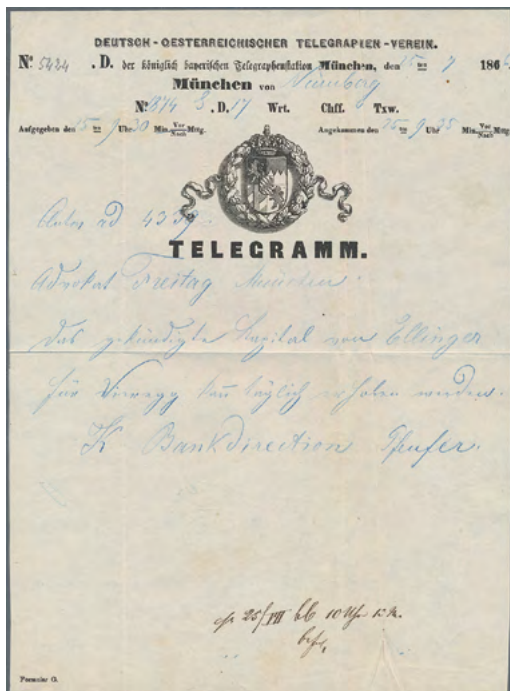 DEUTSCH-OESTERREICHISCHER TELEGRAPHEN-VEREIN.
Nº 5424 . D. der königlich bayerischen Telegraphenstation München, den 15 ten 7 186
München von Nürnberg
Nº 874 S. D. 17 Wrt. Chff. Txw.
Aufgegeben den 15 ten 9 Uhr 30 Min. Vor Nach Mttg. Angekommen den 25 ten 9 Uhr 35 Min. Vor Nach Mttg.
ad 4339.
TELEGRAMM.
Advokat Freitag München.
Das gekündigte Kapital von Ellinger
für Vieregg kann täglich erhoben werden.
K Bankdirection Pfeufer.
25/VII 10 Uhr
Formular O.